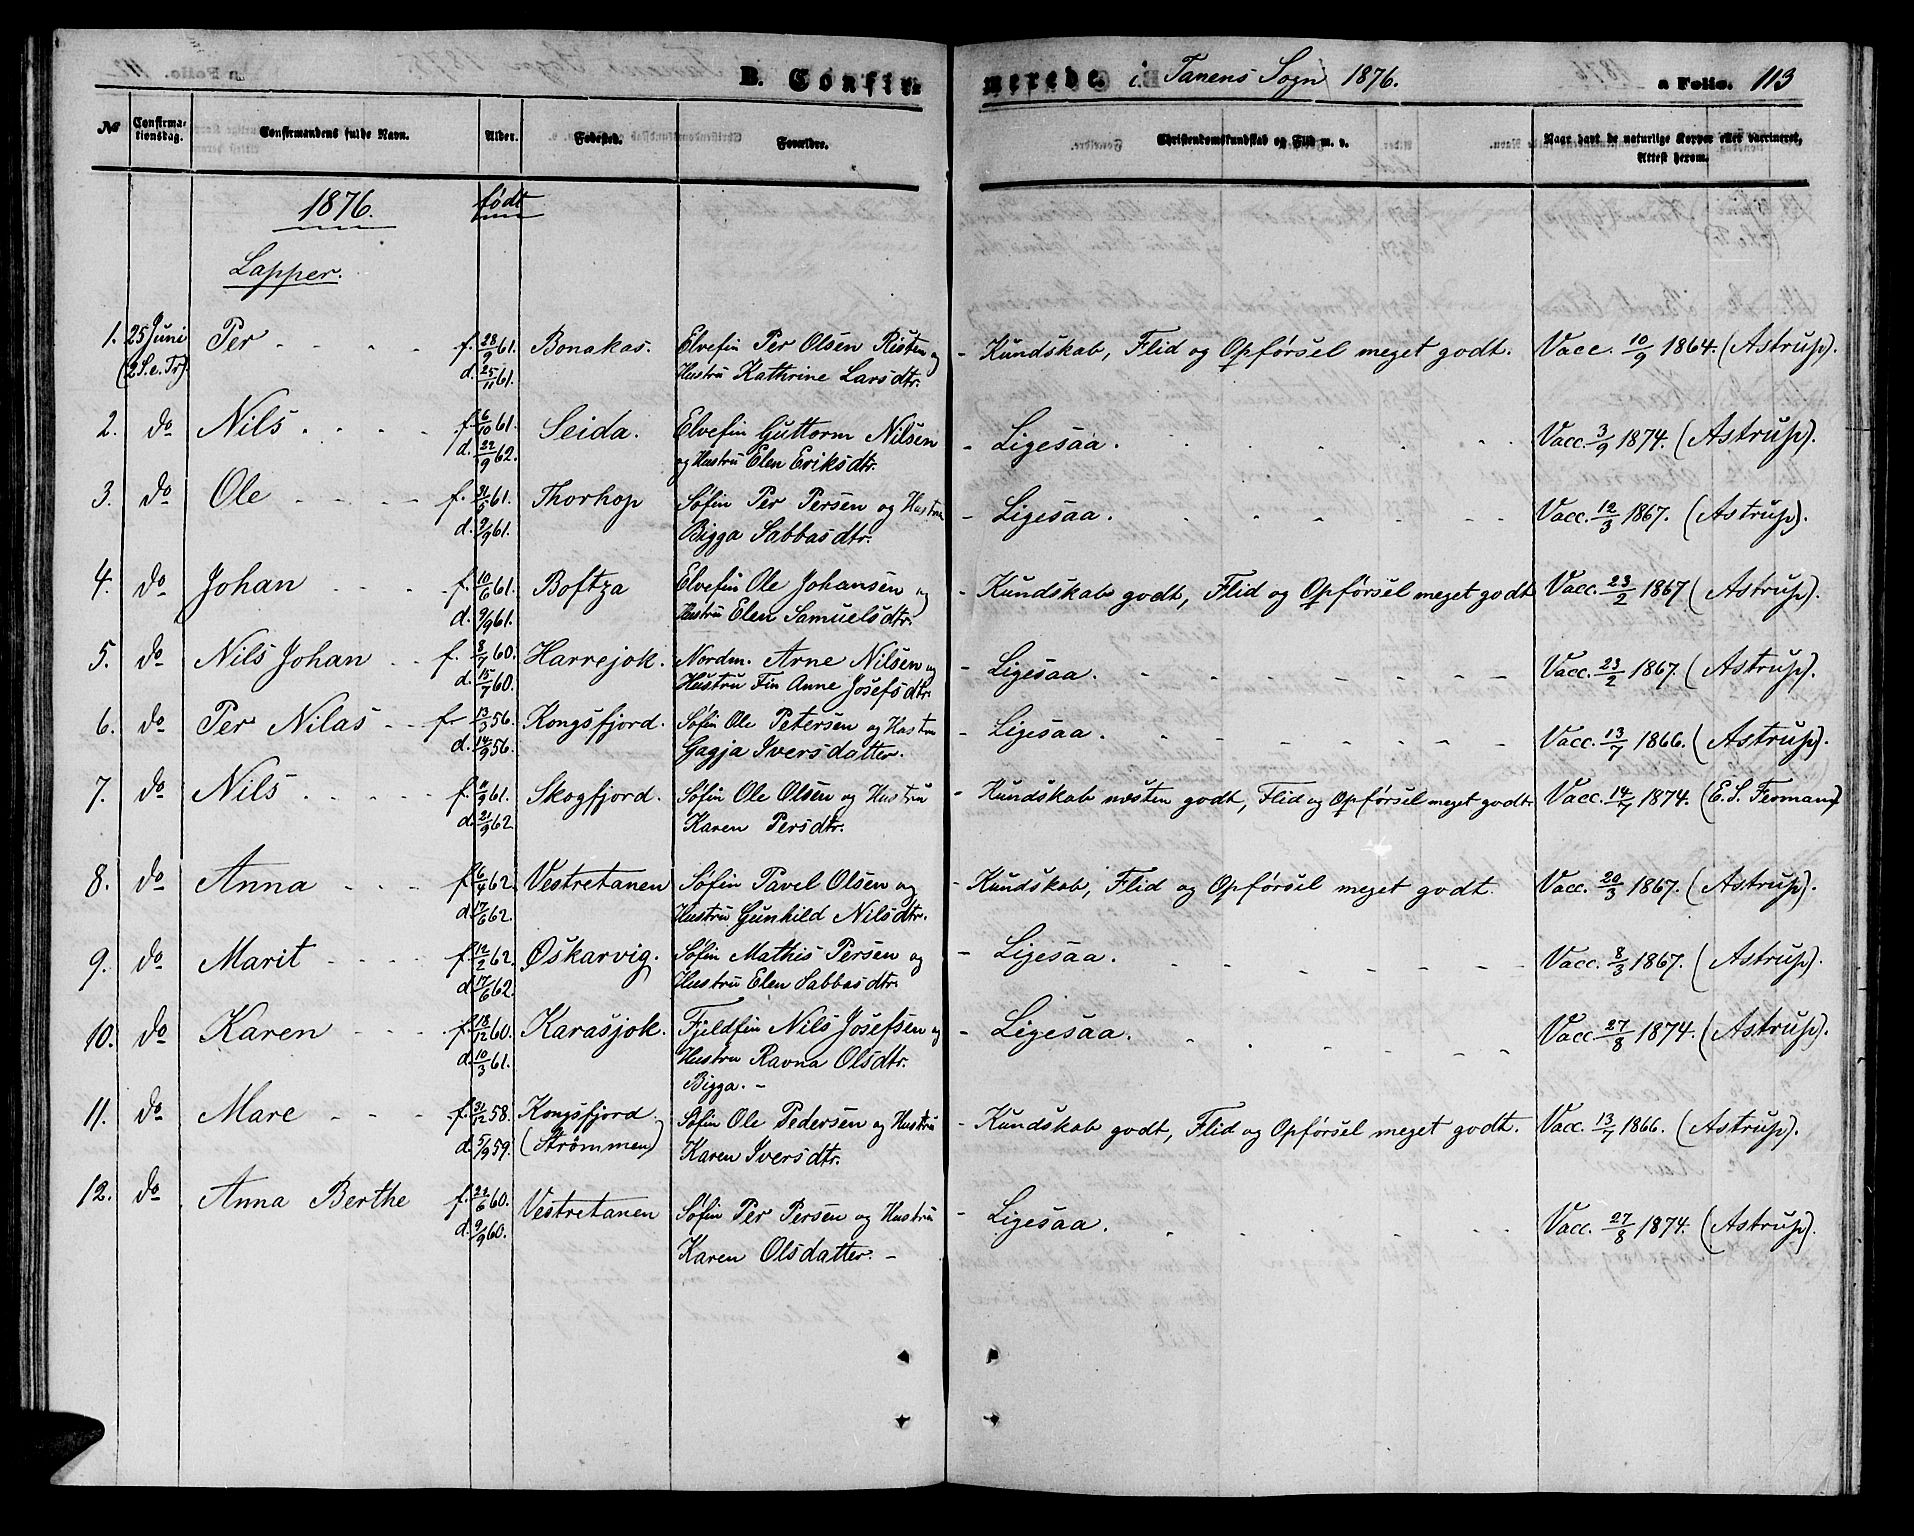 B. Confirmerede i Tanens Sogn 1876. a Folio. 113
№ Confirmationsdag. Confirmandens fulde Navn. Alder. Fødested. Forældre. Christendomskundskab og Flid m. v. Naar havt de naturlige Kopper eller vaccineret, Attest herom.
1876. født
Lapper.
1. 25 Juni Per - - - - f. 28/9 61. Bonakas. Elvefin Per Olsen Risten og - Kundskab, Flid og Opførsel meget godt. Vacc. 10/9 1864. (Astrup).
(2 S. e. Tr). d. 25/11 61. Hustru Kathrine Larsdtr.
2. do Nils - - - - f. 6/10 61. Seida. Elvefin Guttorm Nilsen - Ligesaa. Vacc. 3/9 1874. (Astrup).
d. 22/9 62. og Hustru Elen Eriksdtr.
3. do Ole - - - - f. 31/5 61. Thorhop Søfin Per Persen og Hustru - Ligesaa. Vacc. 12/3 1867. (Astrup).
d. 9/9 61. Bigga Sabbasdtr.
4. do Johan - - - f. 10/6 61. Boftza Elvefin Ole Johansen og - Kundskab godt, Flid og Opførsel meget godt Vacc. 23/2 1867 (Astrup).
d. 9/9 61. Hustru Elen Samuelsdtr.
5. do Nils Johan - - f. 8/7 60. Harrejok. Nordm. Arne Nilsen og - Ligesaa. Vacc. 23/2 1867. (Astrup).
d. 15/7 60. Hustru Fin Anne Josefsdtr.
6. do Per Nilas - - f 13/3 56. Kongsfjord. Søfin Ole Petersen og Hustru - Ligesaa. Vacc. 13/7 1866. (Astrup).
d. 14/9 56. Gagja Iversdatter.
7. do Nils - - - - f. 9/9 61. Skogfjord. Søfin Ole Olsen og Hustru - Kundskab næsten godt, Flid og Opførsel meget godt. Vacc. 14/7 1874. (E. S. Ferman)
d. 21/9 62 Karen Persdtr.
8. do Anna - - - f 6/4 62. Vestretanen Søfin Pavel Olsen og - Kundskab, Flid og Opførsel meget godt. Vacc. 20/3 1867. (Astrup).
d. 17/6 62. Hustru Gunhild Nilsdtr.
9. do Marit - - - - f. 12/2 62. Øskarvig. Søfin Mathis Persen og - Ligesaa. Vacc. 8/3 1867. (Astrup).
d. 17/6 62. Hustru Elen Sabbasdtr.
10. do Karen - - - - f. 18/12 60. Karasjok. Fjeldfin Nils Josefsen og - Ligesaa. Vacc. 27/8 1874. (Astrup).
d. 10/3 61. Hustru Ravna Olsdtr.
Bigga. -
11. do Mare - - - f. 31/12 58. Kongsfjord Søfin Ole Pedersen og Hustru - Kundskab godt, Flid og Opførsel meget godt. Vacc. 13/7 1866. (Astrup).
d. 5/9 59. (Strømmen) Karen Iversdtr.
12. do Anna Berthe f. 22/6 60. Vestretanen Søfin Per Persen og Hustru - Ligesaa. Vacc. 27/8 1874. (Astrup).
d. 9/9 60. Karen Olsdatter. -